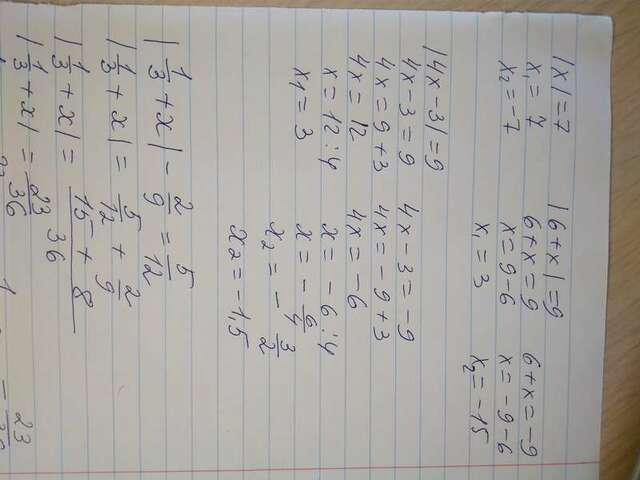 |x|=7
x₁=7
x₂=-7
|6+x|=9
6+x=9
x=9-6
x₁=3
6+x=-9
x=-9-6
x₂=-15
|4x-3|=9
4x-3=9
4x=9+3
4x=12
x=12:4
x₁=3
4x-3=-9
4x=-9+3
4x=-6
x=-6:4
x=-6/4
x₂=-3/2
x₂=-1,5
|1/3+x|-2/9=5/12
|1/3+x|=5/12+2/9
|1/3+x|=15+8/36
|1/3+x|=23/36